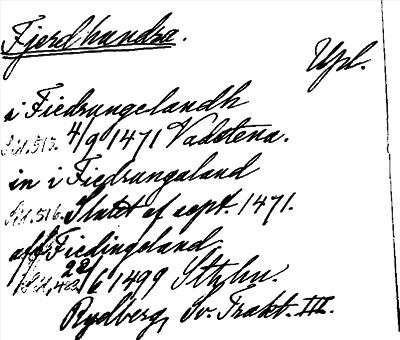 Fjerdhundra.
Upl.
i Fiedrungelandh
Sid. 513. 4/9 1471 Vadstena.
in i Fiedrungaland
Sid. 516. Slutet af sept. 1471.
aff Fiedingeland
Sid. 422. 22/6 1499 Sthlm.
Rydberg, Sv. Trakt. III.